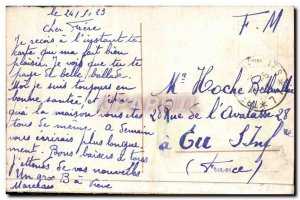 le 24/5.23
F. M
cher Frère
Je reçois à l'instant ta
carte qui m'a fait bien
plaisir. Je vois que tu te
paye de belle ballade
Moi je suis toujours en
bonne santée et
que la maison vous êtes
tous de même. A demain
vous écrirais plus longue
ment. Bons baisers à tous
J'attends de vos nouvelles
Un gros B à Frère
Mr Hoche
28 Rue de l'Avalasse 28
à
Eu S. Inf
(France)